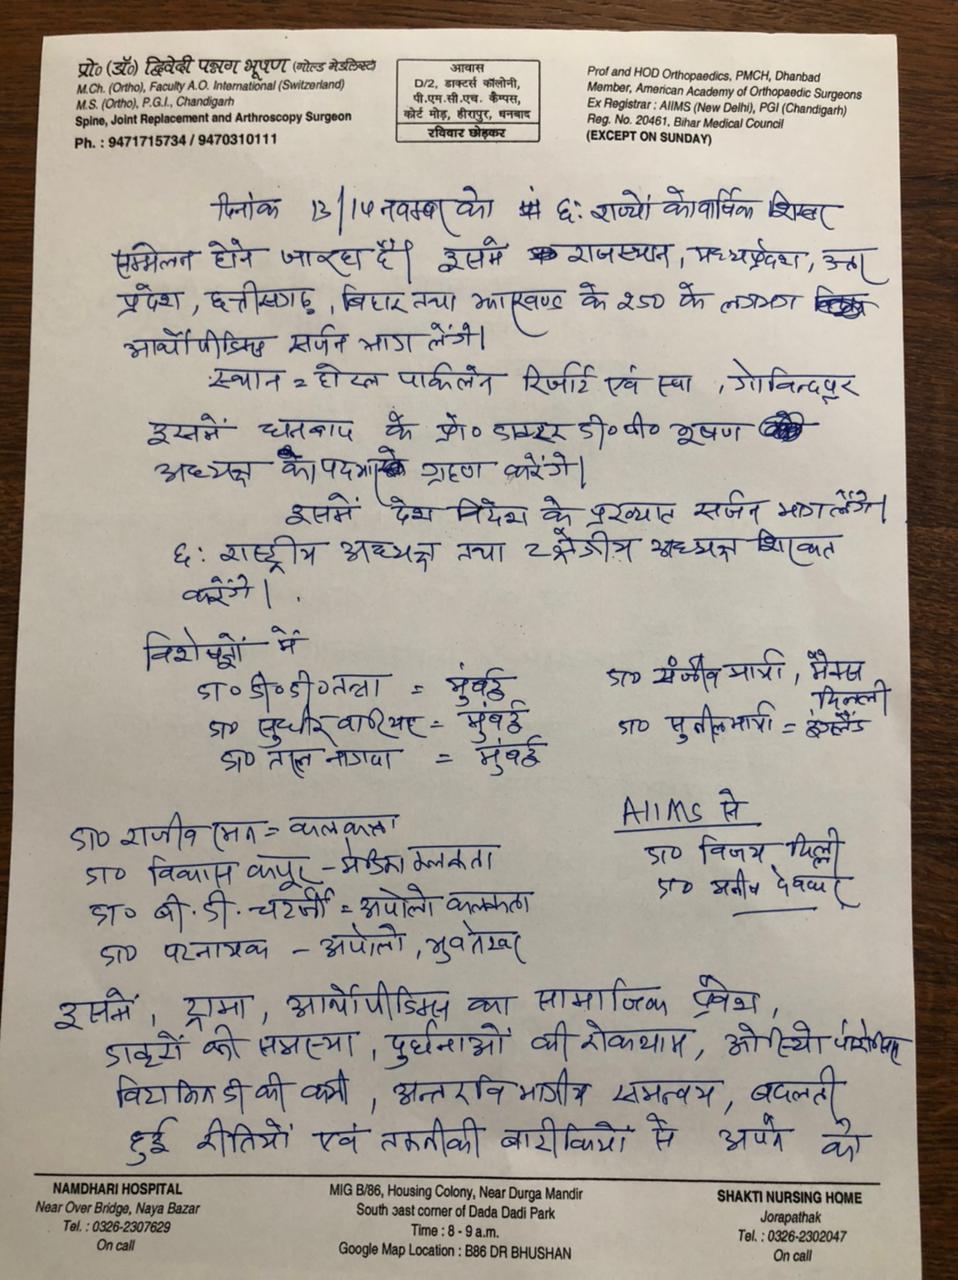 प्रो० (डॉ०) द्विवेदी पन्नग भूषण (गोल्ड मेडलिस्ट)
M.Ch. (Ortho), Faculty A.O. International (Switzerland)
M.S. (Ortho), P.G.I., Chandigarh
Spine, Joint Replacement and Arthroscopy Surgeon
Ph. : 9471715734 / 9470310111
आवास
D/2, डाक्टर्स कॉलोनी,
पी.एम.सी.एच. कैम्पस,
कोर्ट मोड़, हीरापुर, धनबाद
रविवार छोड़कर
Prof and HOD Orthopaedics, PMCH, Dhanbad
Member, American Academy of Orthopaedic Surgeons
Ex Registrar : AIIMS (New Delhi), PGI (Chandigarh)
Reg. No. 20461, Bihar Medical Council
(EXCEPT ON SUNDAY)
दिनांक 13/14 नवम्बर को छ: राज्यों का वार्षिक शिखर
सम्मेलन होने जा रहा है। इसमें राजस्थान, मध्यप्रदेश, उत्तर
प्रदेश, छत्तीसगढ़, बिहार तथा झारखण्ड के 250 के लगभग
आर्थोपीडिक सर्जन भाग लेंगे।
स्थान = होटल पार्कलेन रिजॉर्ट एवं स्पा, गोविन्दपुर
इसमें धनबाद के प्रो० डाक्टर डी० पी० भूषण
अध्यक्ष का पदभार ग्रहण करेंगे।
इसमें देश विदेश के प्रख्यात सर्जन भाग लेंगे।
छ: राष्ट्रीय अध्यक्ष तथा 2 क्षेत्रीय अध्यक्ष शिरकत
करेंगे।
विशेषज्ञों में
डा० डी० डी० तन्ना = मुंबई
डा० सुधीर वारियर = मुंबई
डा० नागदा = मुंबई
डा० संजीव , मैक्स
दिल्ली
डा० सुनील = इंग्लैंड
डा० राजीव = कलकत्ता
डा० विकास कपूर - मेडिका कलकत्ता
डा० बी. डी. चटर्जी = अपोलो कलकत्ता
डा० पटनायक - अपोलो, भुवनेश्वर
AIIMS से
डा० विजय, दिल्ली
डा०
इसमें, ट्रामा, आर्थोपीडिक्स का सामाजिक प्रवेश,
डाक्टरों की समस्या, दुर्घटनाओं की रोकथाम, ओस्टियो पोरोसिस
विटामिन डी की कमी, अन्तरविभागीय समन्वय, बदलती
हुई रीतियों एवं तकनीकी बारीकियों से अपने को
NAMDHARI HOSPITAL
Near Over Bridge, Naya Bazar
Tel. : 0326-2307629
On call
MIG B/86, Housing Colony, Near Durga Mandir
South east corner of Dada Dadi Park
Time : 8 - 9 a.m.
Google Map Location : B86 DR BHUSHAN
SHAKTI NURSING HOME
Jorapathak
Tel. : 0326-2302047
On call